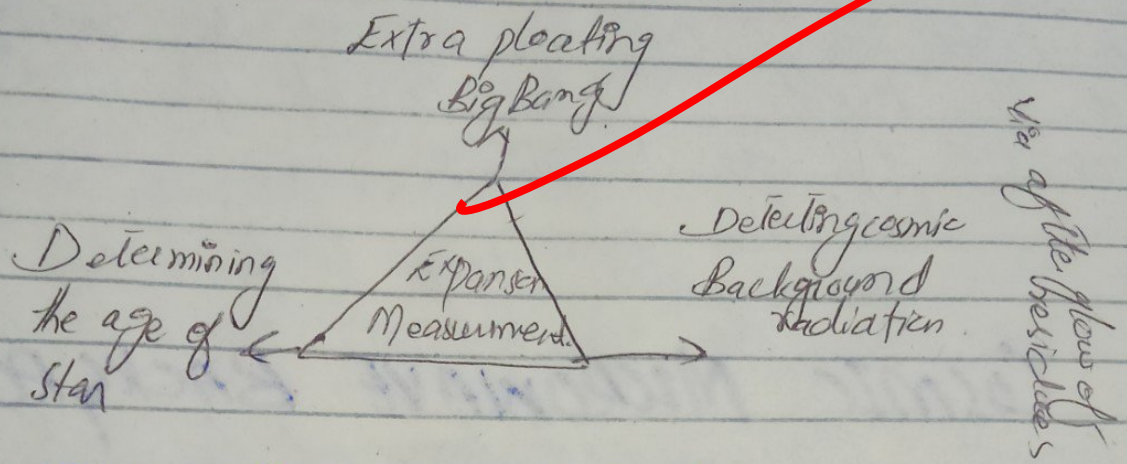 Extra ploating
Big Bang
Determining
the age of
Star
Expansen
Measurment.
Detecting cosmic
Background
radiation
via after glow of